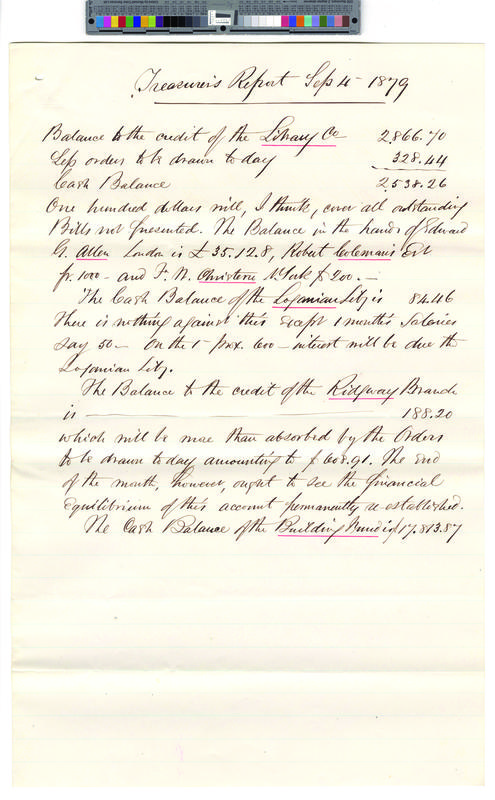 Treasurer's Report Sep 4 - 1879
Balance to the credit of the Library Co 2,866.70
Less orders to be drawn to day 328.44
Cash Balance 2,538.26
One hundred dollars will, I think, cover all outstanding
Bills not presented. The Balance in the hands of Edward
G. Allen London is £35.12.8, Robert Coleman's Est
fr. 1000 - and F. W. Christern N. York $200. -
The Cash Balance of the Loganian Liby is 84.46
There is nothing against this except 1 month's Salaries
say 50 - On the 1st prox. 600 - interest will be due the
Loganian Liby.
The Balance to the credit of the Ridgway Branch
is 188.20
which will be more than absorbed by the Orders
to be drawn to day amounting to $ 608.91. The end
of the month, however, ought to see the financial
Equilibrium of this account permanently re-established.
The Cash Balance of the Building Fund is 17.813.87